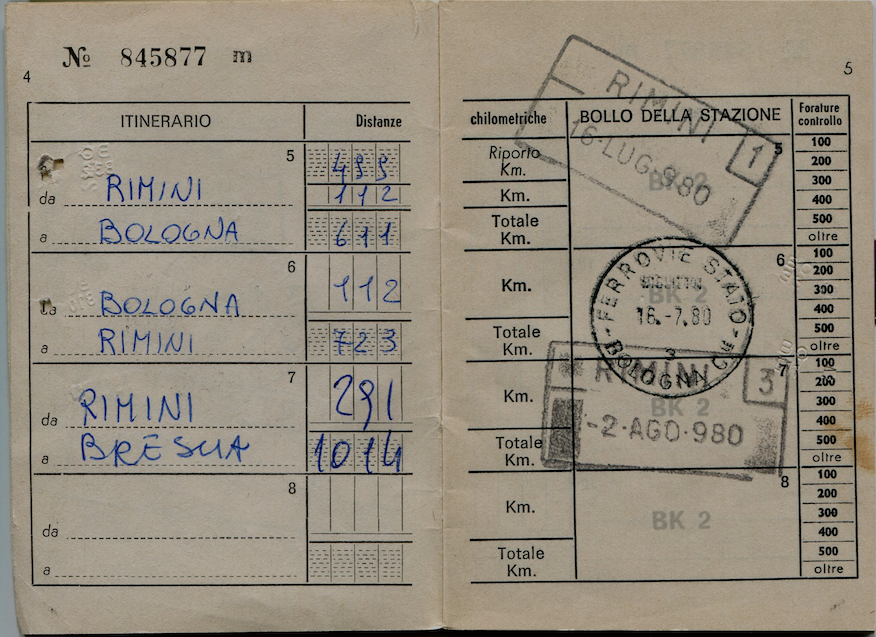 Nº 845877 m
4
ITINERARIO Distanze
5
499
da RIMINI 112
a BOLOGNA 611
6
da BOLOGNA 112
a RIMINI 723
7
da RIMINI 291
a BRESCIA 1014
8
da
a
5
chilometriche BOLLO DELLA STAZIONE Forature controllo
Riporto Km.
Km.
Totale Km.
5
RIMINI 1
16·LUG·980
BK 2
100
200
300
400
500
oltre
Km.
Totale Km.
6
FERROVIE STATO
BIGLIETTI
16.-7.80
3
BOLOGNA
BK 2
100
200
300
400
500
oltre
Km.
Totale Km.
7
RIMINI 3
-2·AGO·980
BK 2
100
200
300
400
500
oltre
Km.
Totale Km.
8
BK 2
100
200
300
400
500
oltre